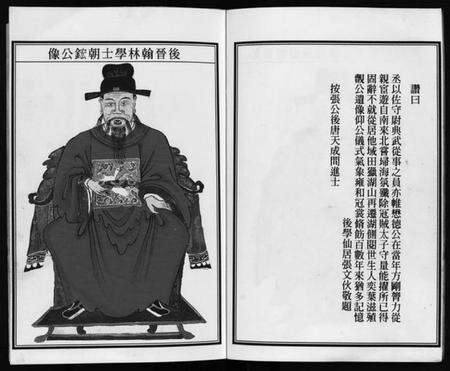 後晉翰林學士朝鋐公像
讚曰
丞以佐守尉典武從事之員亦惟懋德公在當年方剛膂力從
親宦遊自南來北嘗掃海氛殲除寇賊太子守量能擢所已得
固辭不就從居他域田獵湖山再遷湖側閱世生人奕葉滋殖
觀公遺像仰公儀式氣象雍和冠裳脩飭百數年來猶多記憶
後學仙居張文伙敬題
按張公後唐天成間進士